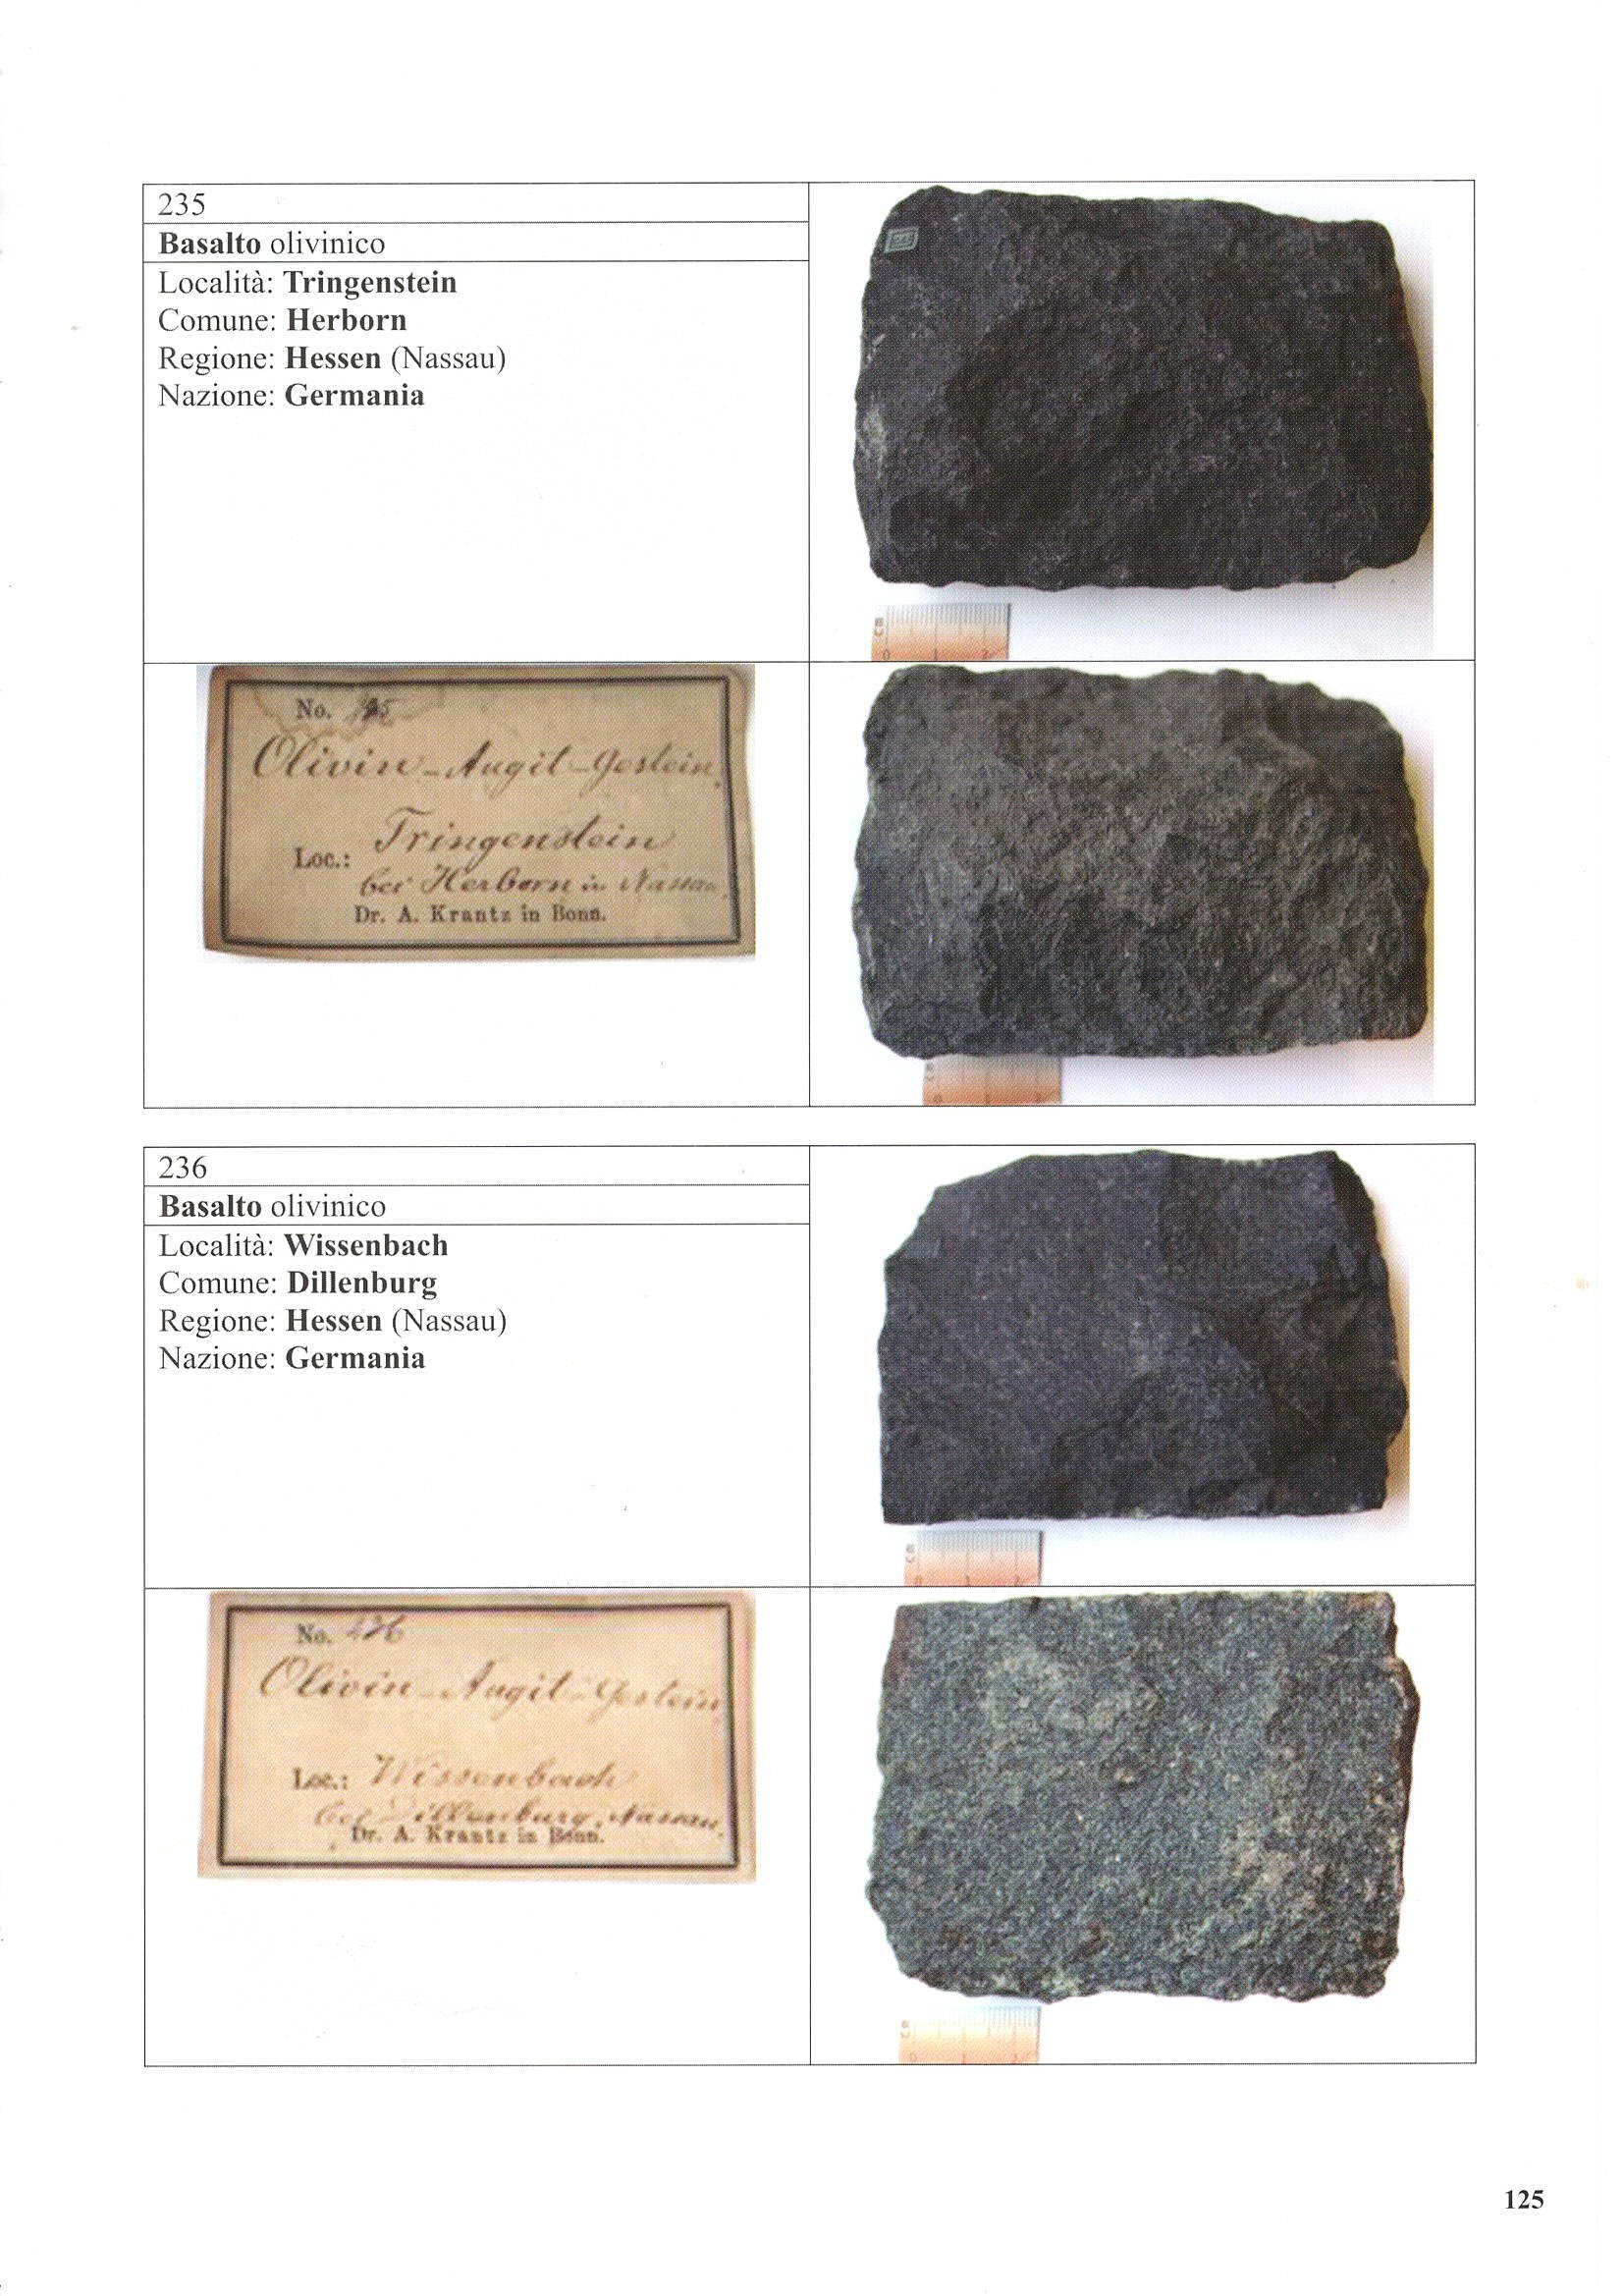 235
Basalto olivinico
Località: Tringenstein
Comune: Herborn
Regione: Hessen (Nassau)
Nazione: Germania
CM
0 1 2
No.
Olivin-Augit-Gestein.
Tringenstein
Loc.:
bei Herborn in Nassau.
Dr. A. Krantz in Bonn.
CM
0 1 2
236
Basalto olivinico
Località: Wissenbach
Comune: Dillenburg
Regione: Hessen (Nassau)
Nazione: Germania
CM
0 1 2
No.
Olivin-Augit-Gestein
Loc.: Wissenbach
bei Dillenburg, Nassau.
Dr. A. Krantz in Bonn.
CM
0 1 2
125